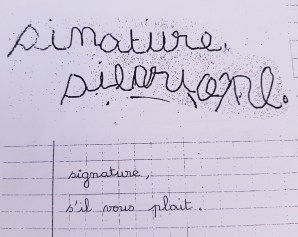 sinature,
signature,
s'il vous plait.